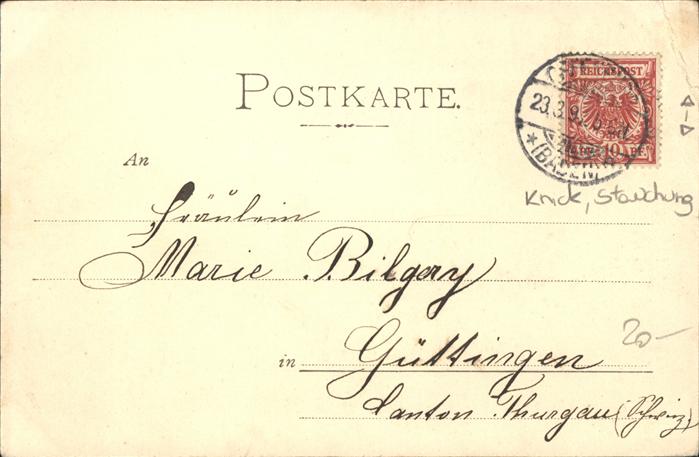 POSTKARTE.
REICHSPOST
23.3.9
10 PF
* (BADEN)
Knick, Stauchung
An
Fräulein
Marie Bilgery
20-
in Güttingen
Canton Thurgau (Schweiz)